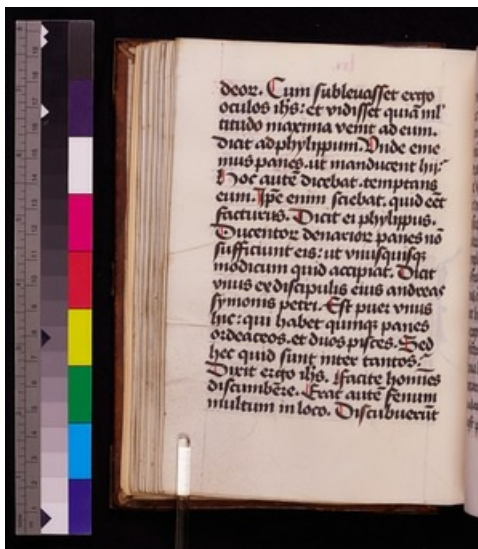 deor. Cum sublevasset ergo
oculos ihs: et vidisset quia ml
titudo maxima venit ad eum.
dicit ad phylippum. Vnde eme
mus panes. ut manducent hij:
Hoc autē dicebat. temptans
eum. Ipē enim sciebat. quid eēt
facturus. Dicit ei phylippus.
Ducentor denarior panes nō
sufficiunt eis: ut vnusquisq
modicum quid accipiat. Dicit
vnus ex discipulis eius andreas
symonis petri. Est puer vnus
hic: qui habet quinq panes
ordeaceos. et duos pisces. Sed
hec quid sunt inter tantos.
Dixit ergo ihs. Facite homies
discumbēre. Erat autē fenum
multum in loco. Discubuerūt